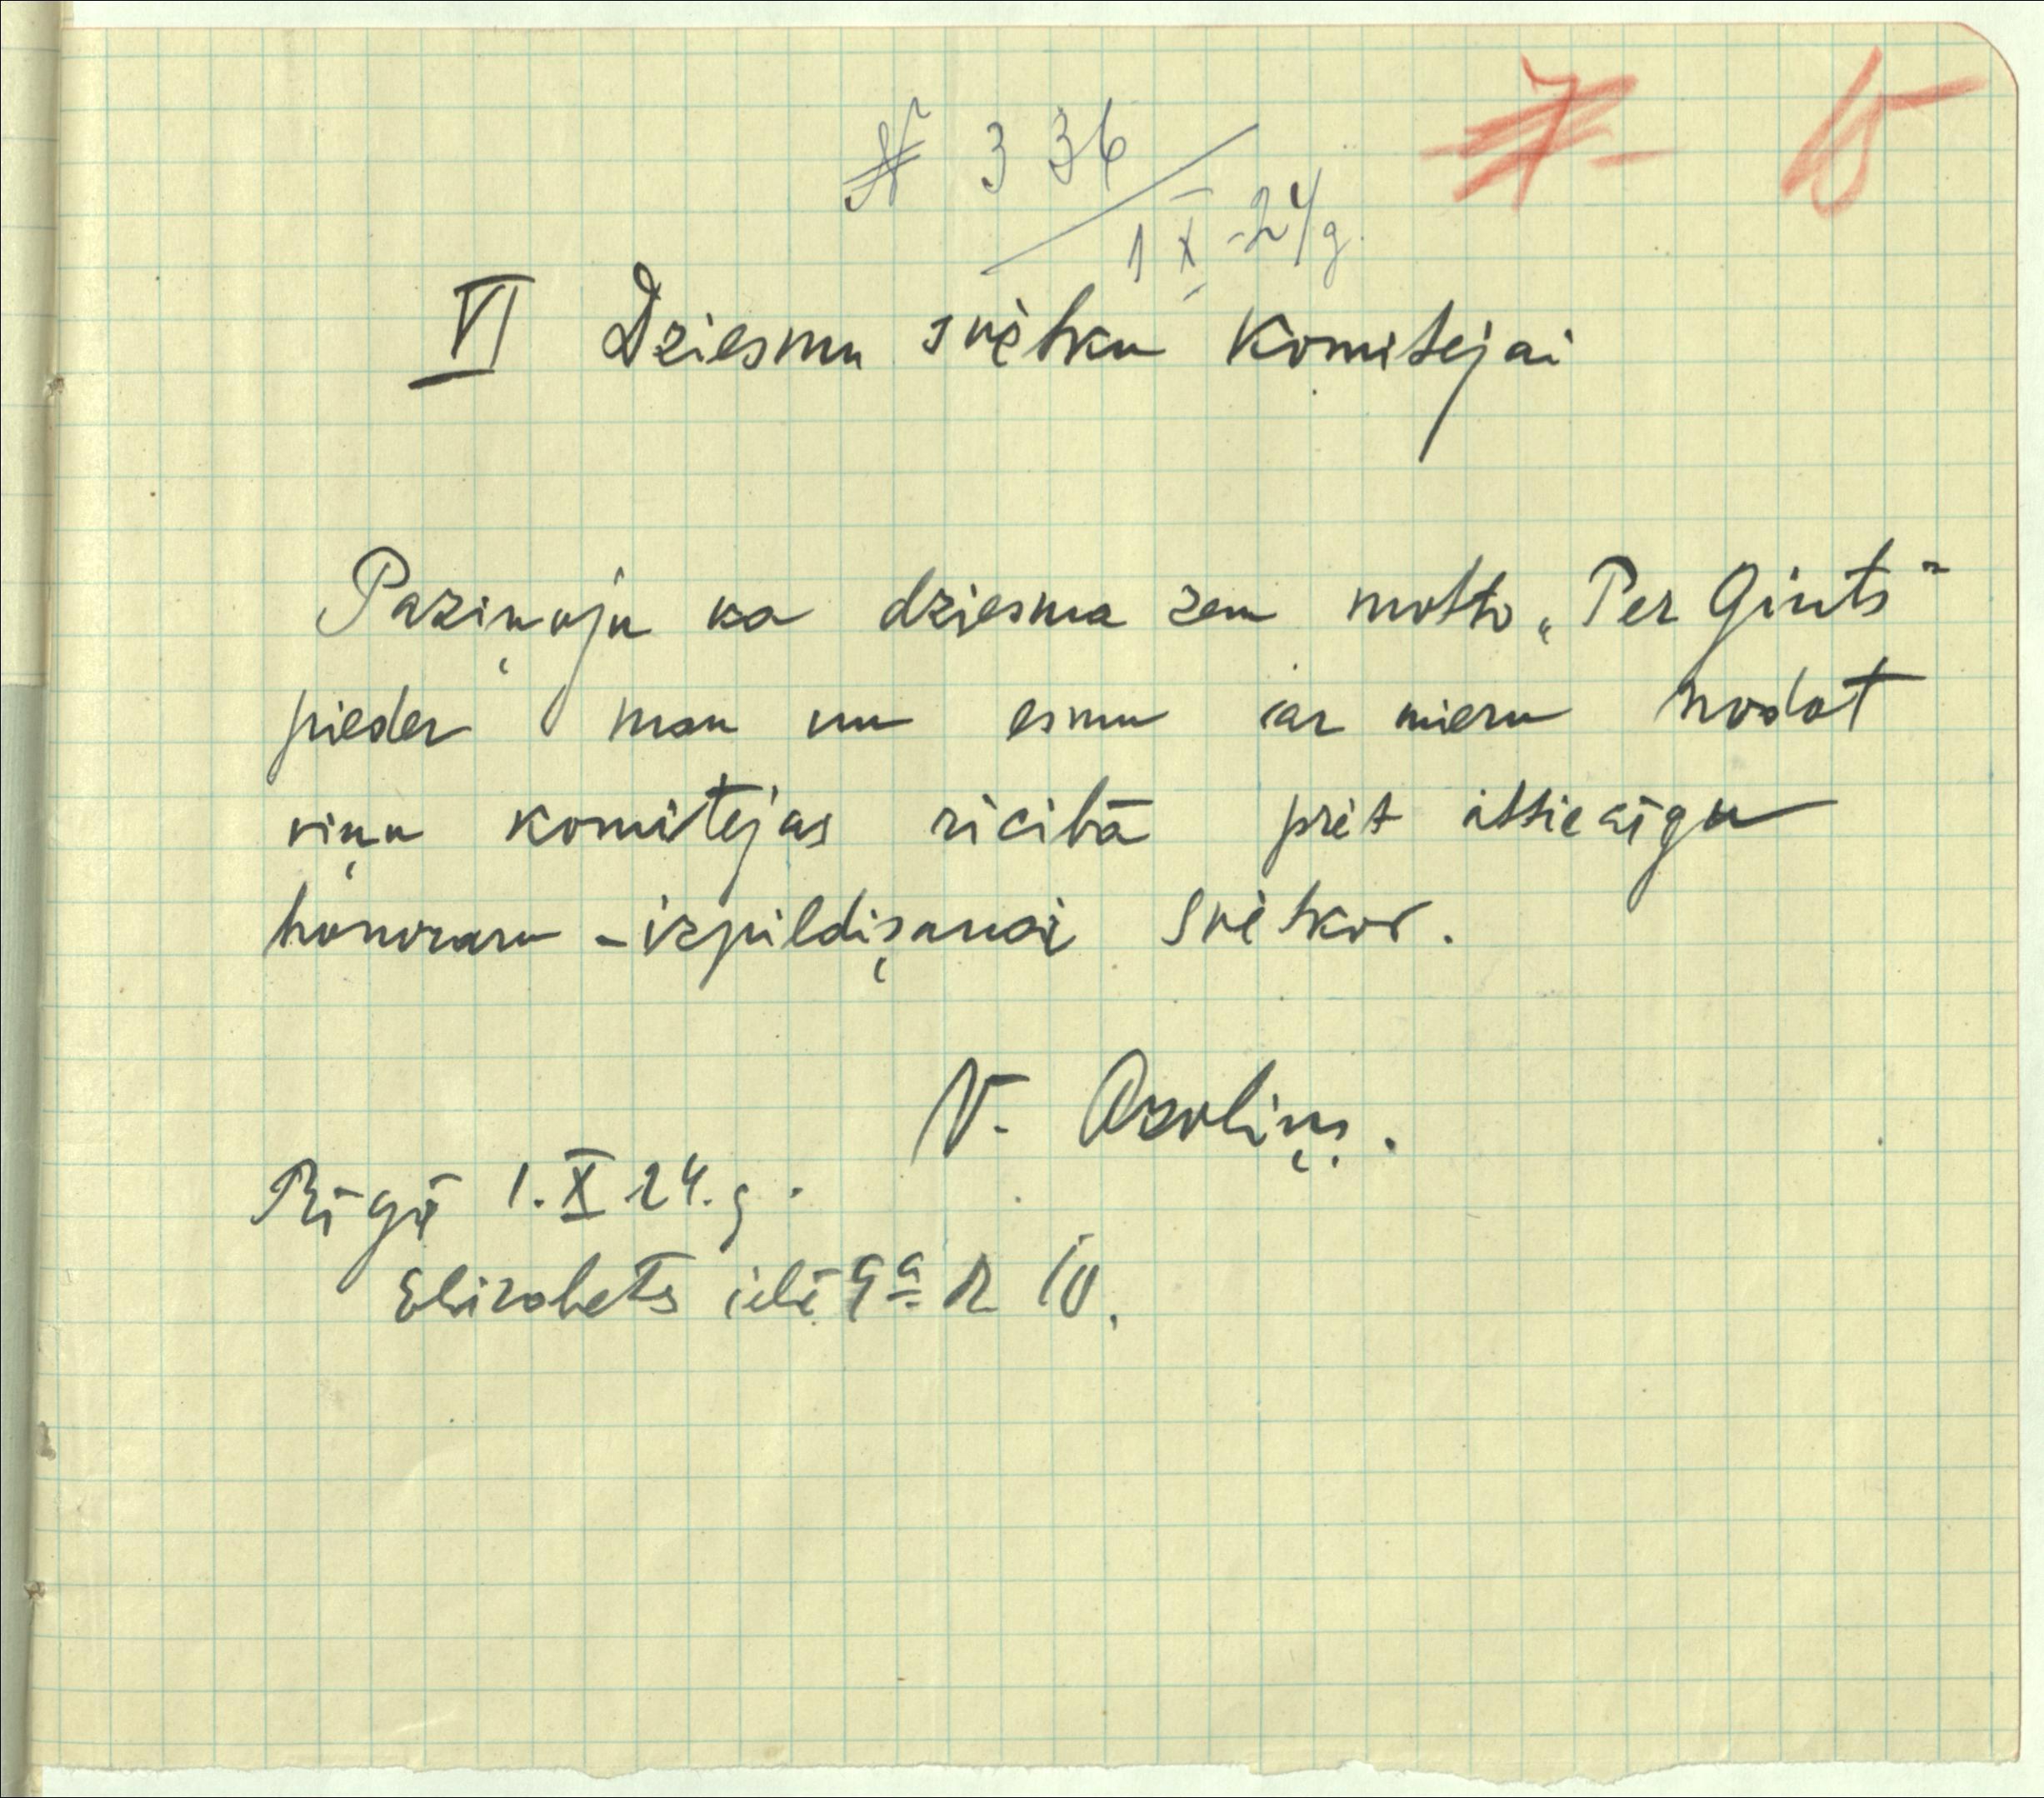 7 15
№ 336
1 X -24/g.
VI Dziesmu svētku Komitejai
Paziņoju ka dziesma zem motto „Per Gints"
pieder man un esmu ar mieru nodot
viņu komitejas rīcibā pret attiecīgu
honoraru - izpildīşanai svētkos.
V. Ozoliņş.
Rīgā 1.X 24. g.
Elizabetes ielā 9a